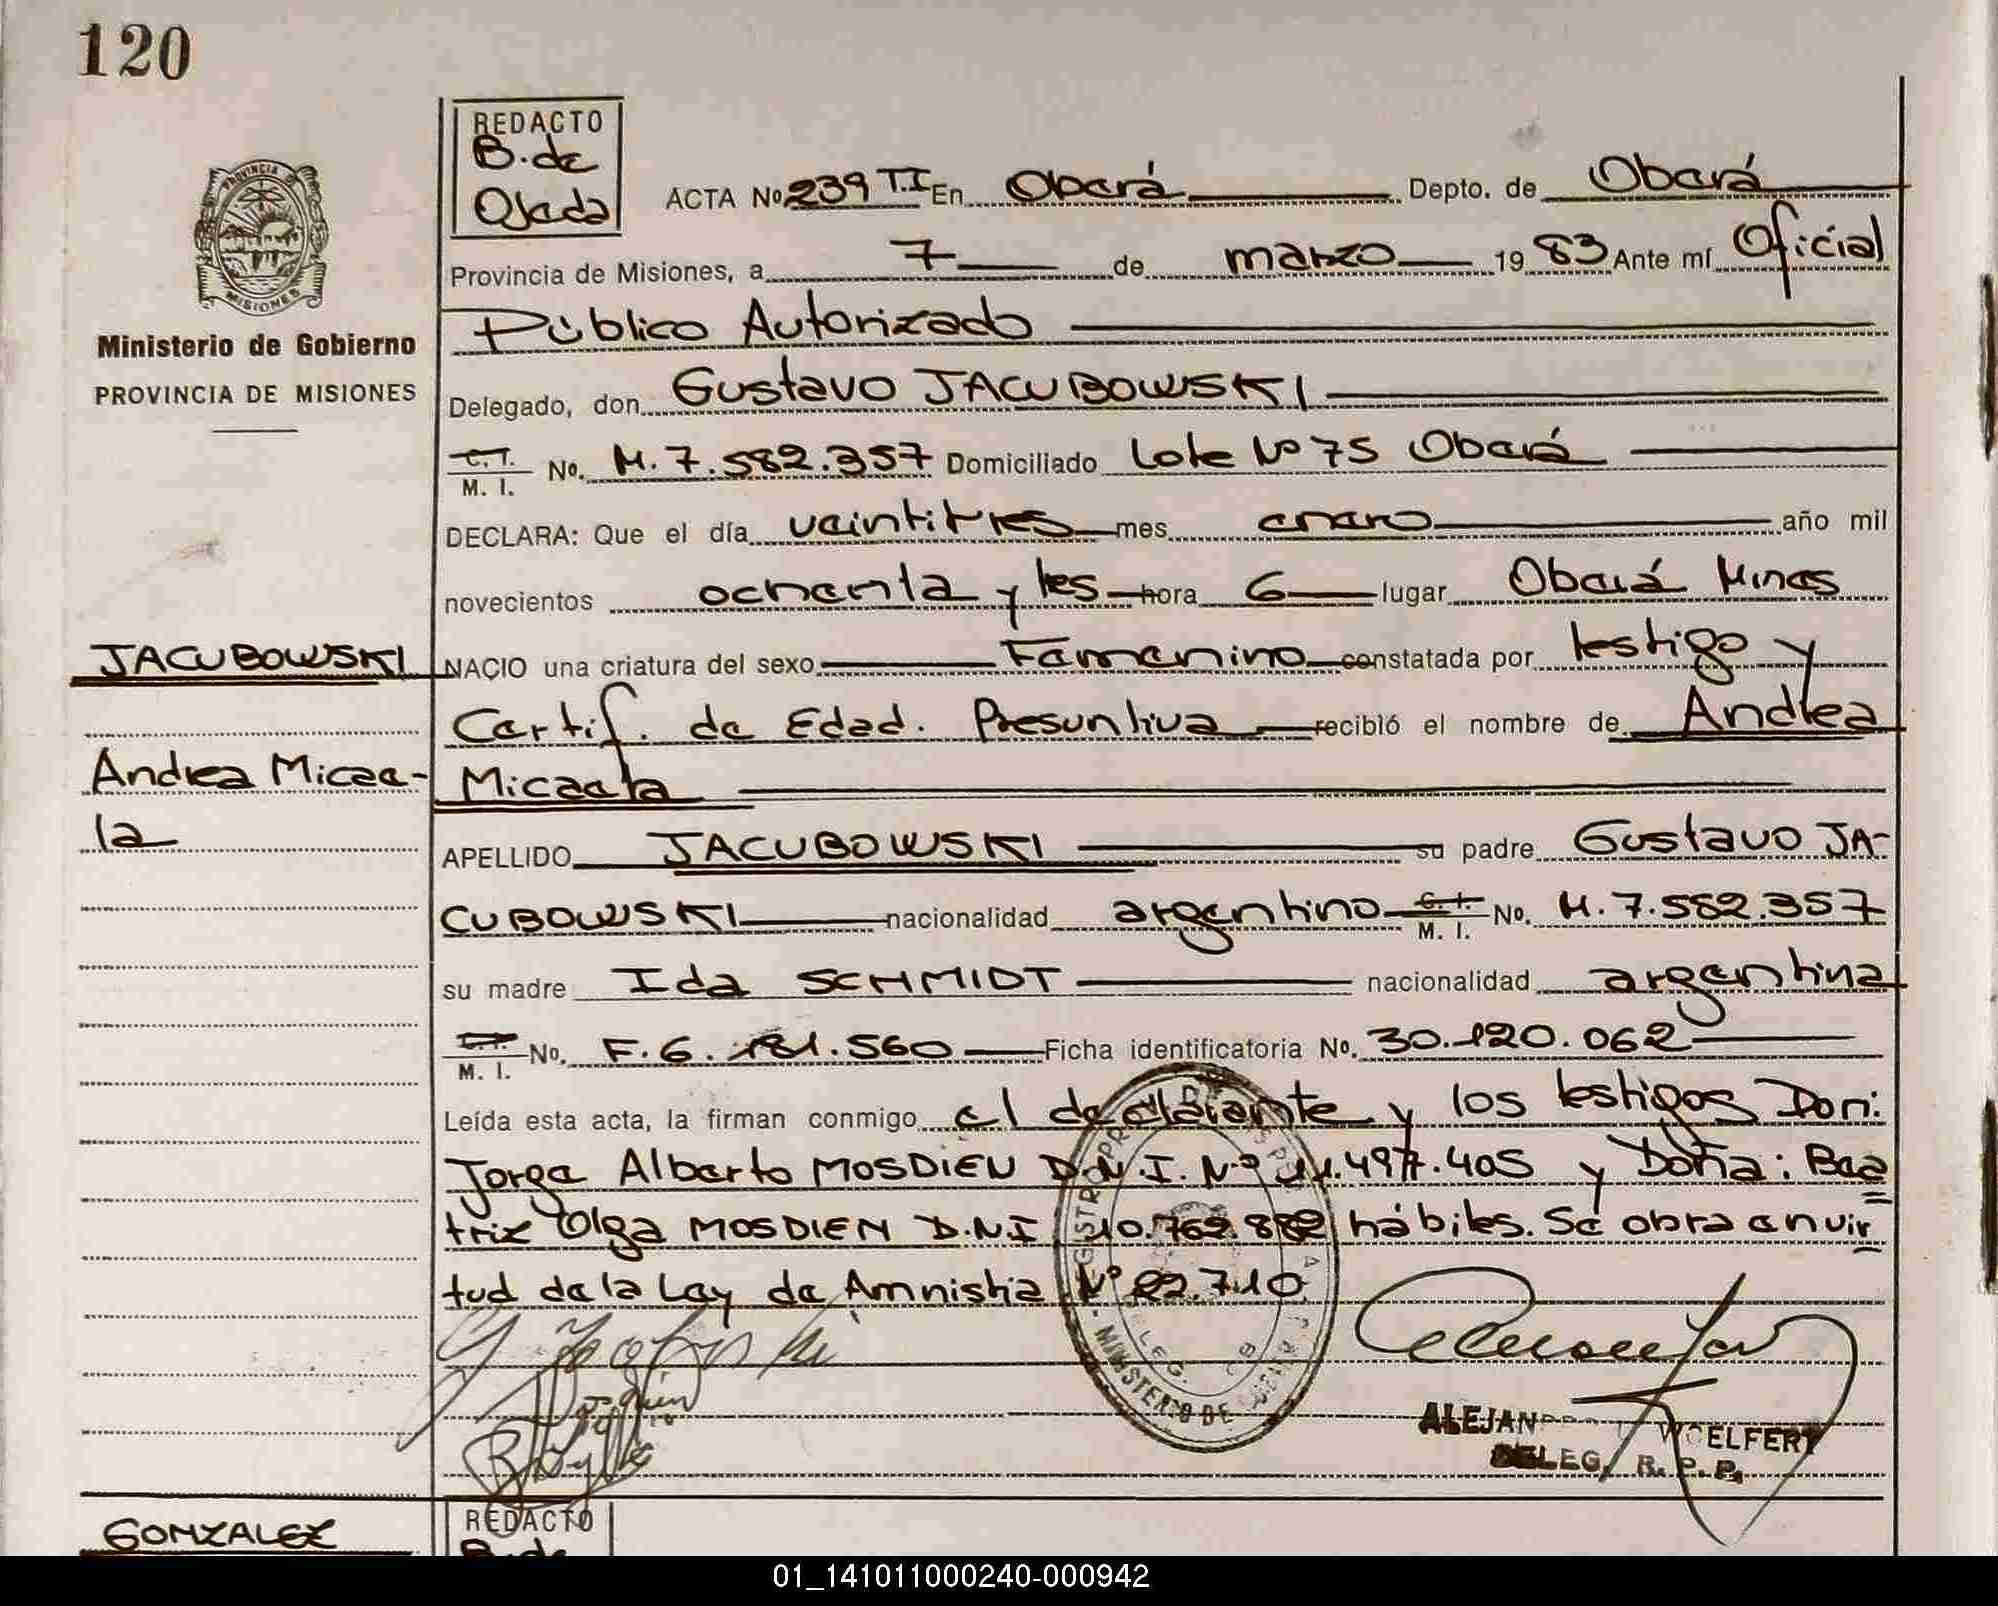 120
REDACTO
B. de
Ojeda
ACTA No 239 T.I En Oberá Depto. de Oberá
Provincia de Misiones, a 7 de marzo 19 83 Ante mí Oficial
Público Autorizado
Delegado, don Gustavo JACUBOWSKI
C.I. M. I. No. M. 7.582.357 Domiciliado Lote Nº 75 Oberá
DECLARA: Que el día veintitres mes enero año mil
novecientos ochenta y tres hora 6 lugar Oberá Mnes
NACIO una criatura del sexo Femenino constatada por testigo y
Certif. de Edad. Presuntiva recibió el nombre de Andrea
Micaela
APELLIDO JACUBOWSKI su padre Gustavo JA-
CUBOWSKI nacionalidad argentino C.I. M. I. No. M. 7.582.357
su madre Ida SCHMIDT nacionalidad argentina
C.I. M. I. No. F. 6.181.560 Ficha identificatoria No. 30.120.062
Leída esta acta, la firman conmigo el declarante y los testigos Don:
Jorge Alberto MOSDIEN D.N.I. Nº 11.497.405 y Doña: Bea
triz Olga MOSDIEN D.N.I 10.762.882 hábiles. Se obra en vir
tud de la Ley de Amnistia Nº 22.710
ALEJAN WOELFERT
DELEG. R. P. P.
PROVINCIA DE
MISIONES
Ministerio de Gobierno
PROVINCIA DE MISIONES
JACUBOWSKI
Andrea Micae-
la
MINISTERIO DE
GONZALEZ
REDACTO
B. de
01_141011000240-000942